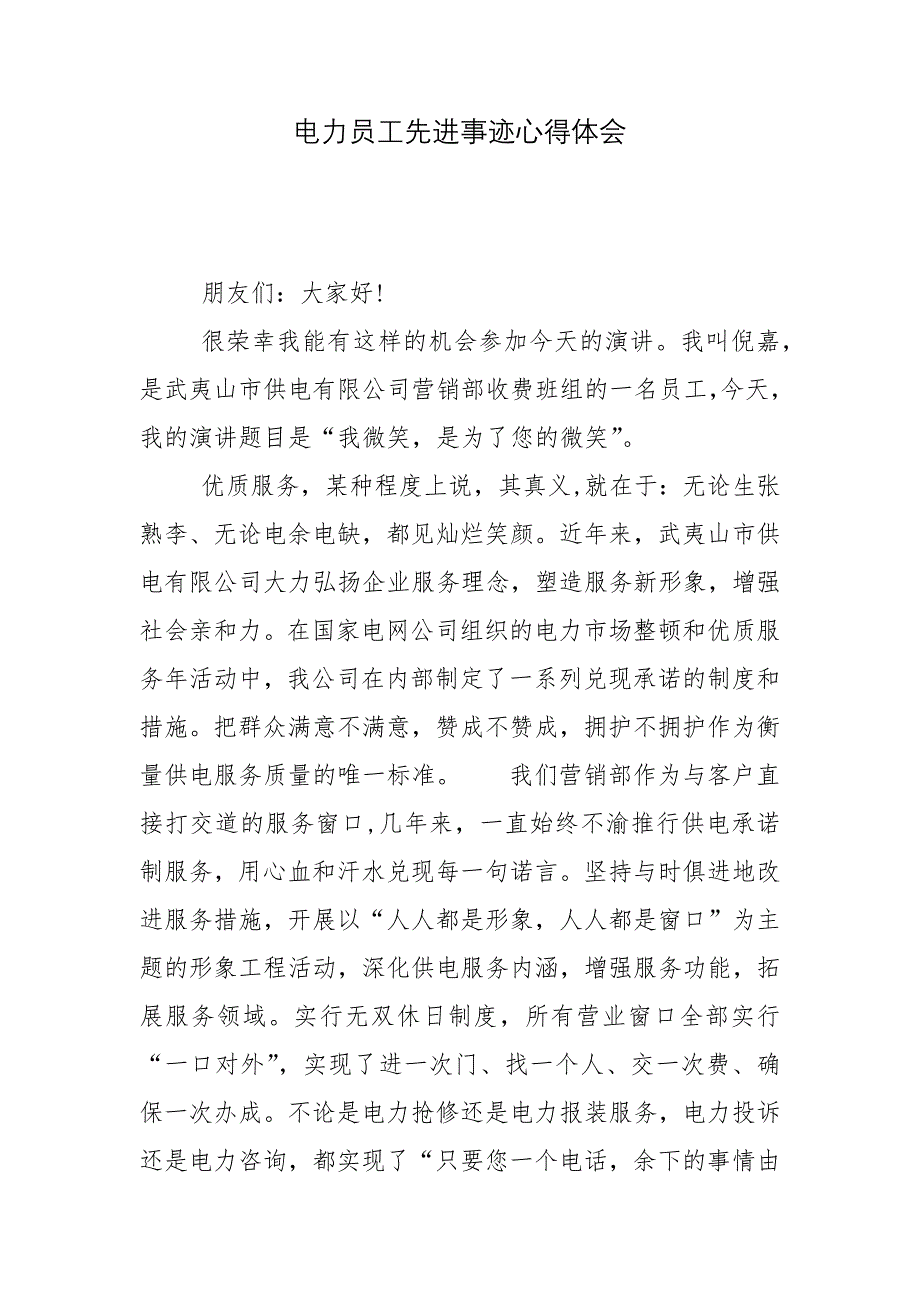 电力员工先进事迹心得体会
朋友们：大家好!
很荣幸我能有这样的机会参加今天的演讲。我叫倪嘉，
是武夷山市供电有限公司营销部收费班组的一名员工,今天，
我的演讲题目是“我微笑，是为了您的微笑”。
优质服务，某种程度上说，其真义,就在于：无论生张
熟李、无论电余电缺，都见灿烂笑颜。近年来，武夷山市供
电有限公司大力弘扬企业服务理念，塑造服务新形象，增强
社会亲和力。在国家电网公司组织的电力市场整顿和优质服
务年活动中，我公司在内部制定了一系列兑现承诺的制度和
措施。把群众满意不满意，赞成不赞成，拥护不拥护作为衡
量供电服务质量的唯一标准。　　我们营销部作为与客户直
接打交道的服务窗口,几年来，一直始终不渝推行供电承诺
制服务，用心血和汗水兑现每一句诺言。坚持与时俱进地改
进服务措施，开展以“人人都是形象，人人都是窗口”为主
题的形象工程活动，深化供电服务内涵，增强服务功能，拓
展服务领域。实行无双休日制度，所有营业窗口全部实行
“一口对外”，实现了进一次门、找一个人、交一次费、确
保一次办成。不论是电力抢修还是电力报装服务，电力投诉
还是电力咨询，都实现了“只要您一个电话，余下的事情由